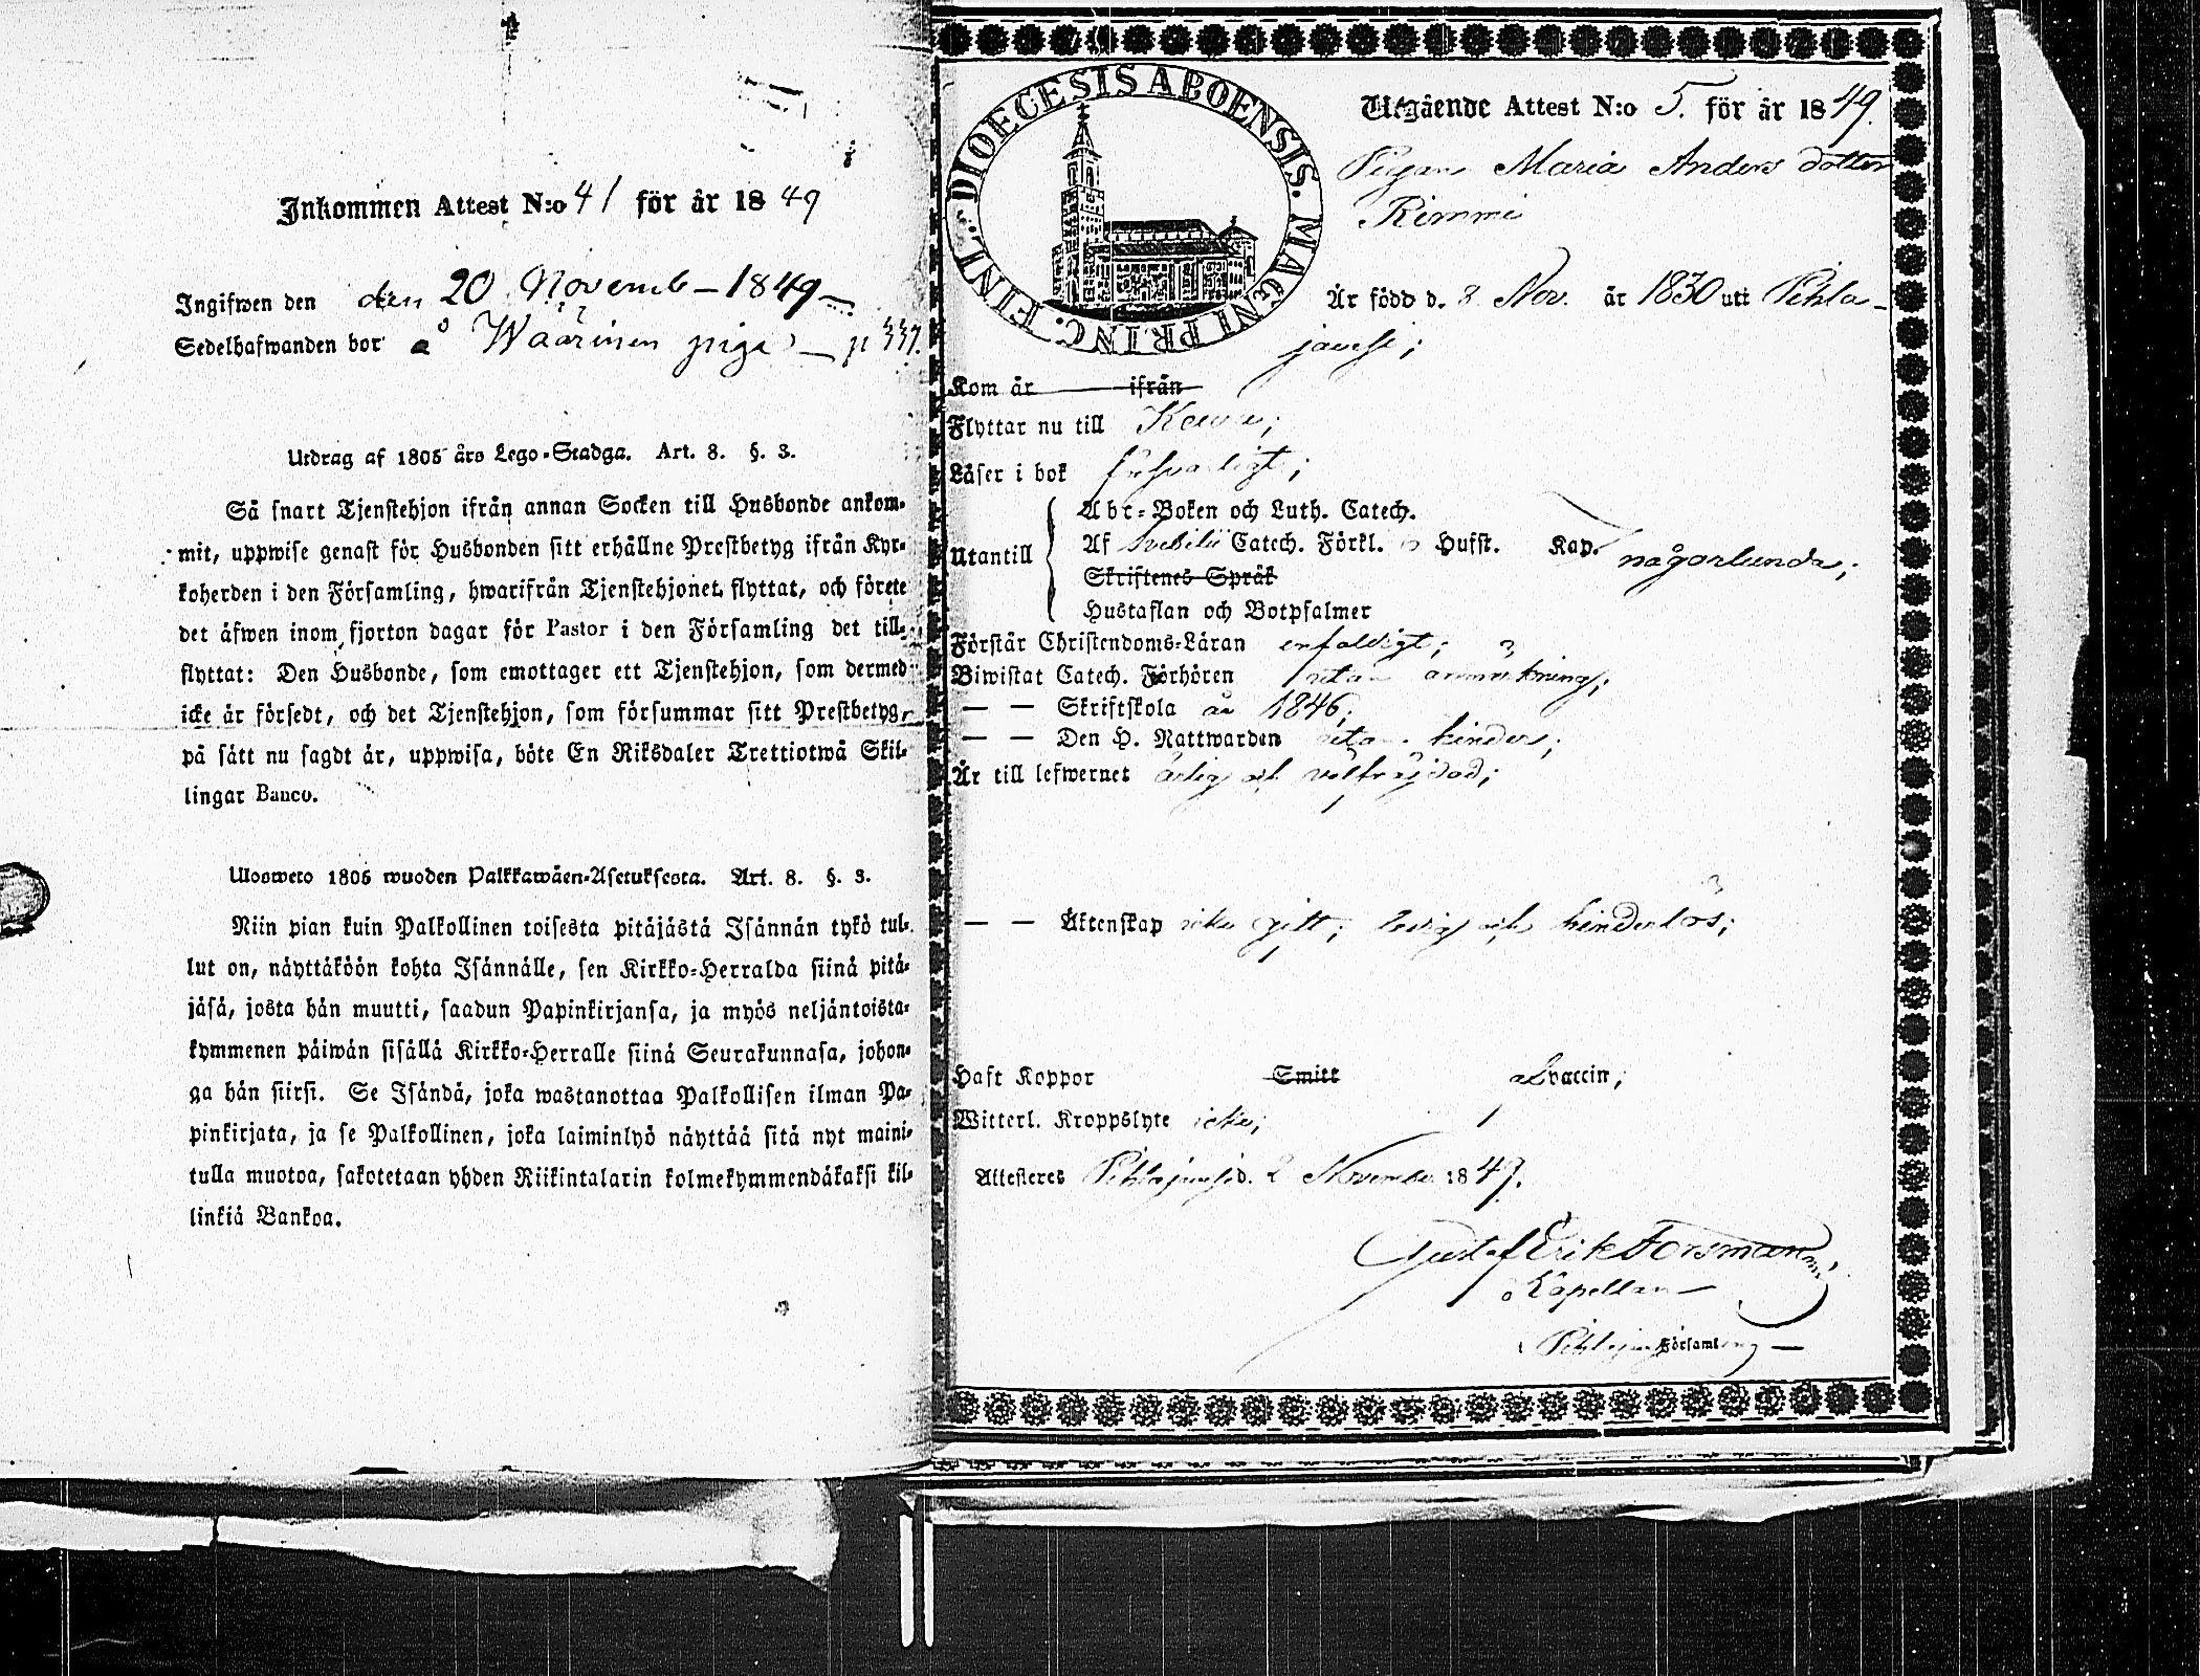 Inkommen Attest N:o 41 för år 1849
Ingifwen den den 20 Novemb – 1849 –
Sedelhafwanden bor å Wäärinen piga – p 337.
Utdrag af 1805 års Lego-Stadga. Art. 8. §. 3.
Så snart Tjenstehjon ifrån annan Socken till Husbonde ankom-
mit, uppwise genast för Husbonden sitt erhållne Prestbetyg ifrån Kyr-
koherden i den Församling, hwarifrån Tjenstehjonet flyttat, och förete
det äfwen inom fjorton dagar för Pastor i den Församling det till-
flyttat: Den Husbonde, som emottager ett Tjenstehjon, som dermed
icke är försedt, och det Tjenstehjon, som försummar sitt Prestbetyg,
på sätt nu sagdt är, uppwisa, böte En Riksdaler Trettiotwå Skil-
lingar Banco.
Ulosweto 1805 wuoden Palkkawäen-Asetuksesta. Art. 8. §. 3.
Niin pian kuin Palkollinen toisesta pitäjästä Isännän tykö tul-
lut on, näyttäköön kohta Isännälle, sen Kirkko-Herralda siinä pitä-
jäsä, josta hän muutti, saadun Papinkirjansa, ja myös neljäntoista-
kymmenen päiwän sisällä Kirkko-Herralle siinä Seurakunnasa, johon-
ga hän siirsi. Se Isändä, joka wastanottaa Palkollisen ilman Pa-
pinkirjata, ja se Palkollinen, joka laiminlyö näyttää sitä nyt maini-
tulla muotoa, sakotetaan yhden Riikintalarin kolmekymmendäkaksi kil-
linkiä Bankoa.
DIOECESIS ABOENSIS. MAGNI PRINC. FINL.
Utgående Attest N:o 5. för år 1849.
Pigan Maria Anders dotter
Rimmi
Är född d. 2 Nov. år 1830 uti Pihla-
javesi;
Kom år ifrån
Flyttar nu till Keuru;
Läser i bok försvarligt;
Utantill
Abc-Boken och Luth. Catech.
Af Svebilii Catech. Förkl. Husst. Kap. någorlunda;
Skriftenes Språk
Hustaflan och Botpsalmer
Förstår Christendoms-Läran enfaldigt;
Biwistat Catech. Förhören utan anmärkning;
— — Skriftskola år 1846;
— — Den H. Nattwarden utan hinder;
Är till lefwernet ärlig och välfräjdad;
— — Äktenskap icke gift; ledig och hinderlös;
Haft Koppor Smitt af vaccin;
Witterl. Kroppslyte icke;
Attesteres Pihlajavesi d. 2 November 1849.
Gustaf Erik Forsman
Kapellan
i Pihlajavesi Församling —